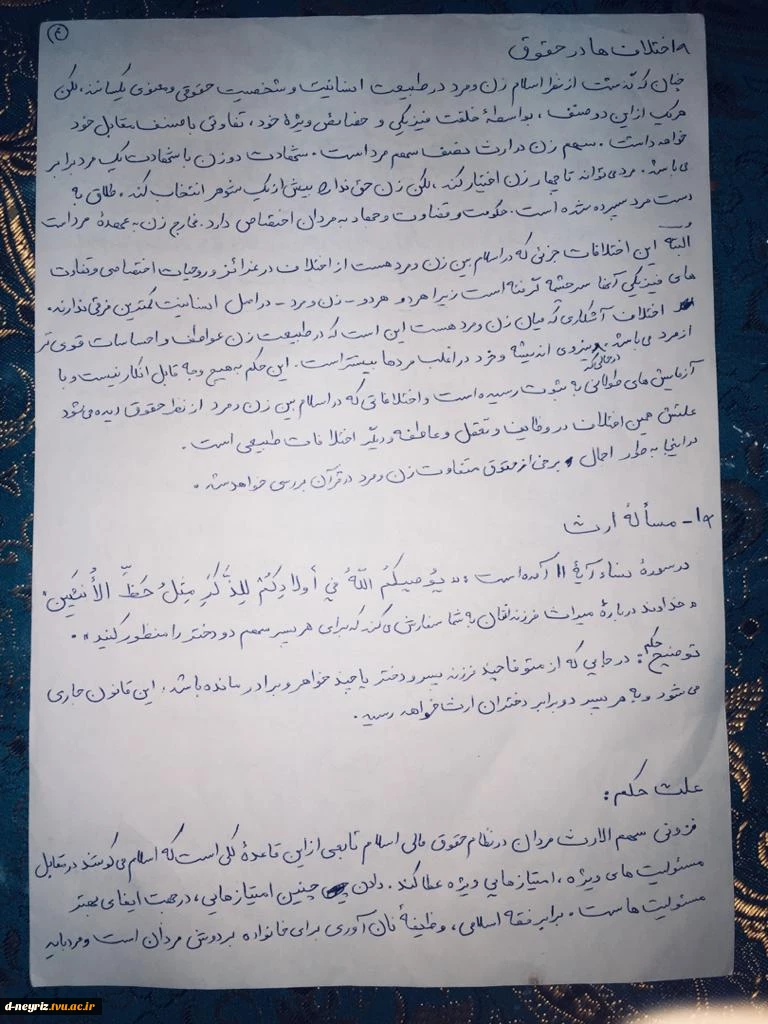 ۴
۹ اختلاف ها در حقوق
چنان که گذشت از نظر اسلام زن و مرد در طبیعت انسانیت و شخصیت حقوقی و معنوی یکسانند، لکن
هر یک از این دو صنف، بواسطهٔ خلقت فیزیکی و خصائص ویژهٔ خود، تفاوتی با صنف مقابل خود
خواهد داشت. سهم زن در ارث نصف سهم مرد است. شهادت دو زن با شهادت یک مرد برابر
می باشد. مرد می تواند تا چهار زن اختیار کند، لکن زن حق ندارد بیش از یک شوهر انتخاب کند. طلاق به
دست مرد سپرده شده است. حکومت و قضاوت و جهاد به مردان اختصاص دارد. مخارج زن به عهدهٔ مرد است
و...
البته این اختلافات جزئی که در اسلام بین زن و مرد هست از اختلاف در غرائز و روحیات اختصاصی و تفاوت
های فیزیکی آنها سرچشمه گرفته است زیرا هر دو - زن و مرد - در اصل انسانیت کمترین فرقی ندارند.
اختلاف آشکاری که میان زن و مرد هست این است که در طبیعت زن عواطف و احساسات قوی تر
از مرد می باشد در حالی که نیروی اندیشه و خرد در اغلب مردها بیشتر است. این حکم به هیچ وجه قابل انکار نیست و با
آزمایش های طولانی به ثبوت رسیده است و اختلافاتی که در اسلام بین زن و مرد از نظر حقوق دیده می شود
علتش همین اختلاف در وظایف و تعقل و عاطفه و دیگر اختلافات طبیعی است.
در اینجا به طور اجمال برخی از حقوق متفاوت زن و مرد در قرآن بررسی خواهد شد.
۹-۱ مسألهٔ ارث
در سورهٔ نساء آیهٔ ۱۱ آمده است: «یُوصیکُمُ اللّهُ فی أولادِکُم لِلذَّکَرِ مِثلُ حَظِّ الأُنثَیَینِ»
«خداوند دربارهٔ میراث فرزندانتان به شما سفارش می کند که برای هر پسر سهم دو دختر را منظور کنید».
توضیح حکم: در جایی که از متوفا چند فرزند پسر و دختر یا چند خواهر و برادر مانده باشد. این قانون جاری
می شود و به هر پسر دو برابر دختران ارث خواهد رسید.
علت حکم:
فزونی سهم الارث مردان در نظام حقوق مالی اسلام تابعی از این قاعدهٔ کلی است که اسلام می کوشد در مقابل
مسئولیت های ویژه، امتیازهایی ویژه عطا کند. دادن چنین امتیازهایی، در جهت ایفای بهتر
مسئولیت هاست. برابر فقه اسلامی، وظیفهٔ نان آوری برای خانواده بر دوش مردان است و مرد باید
d-neyriz.tvu.ac.ir